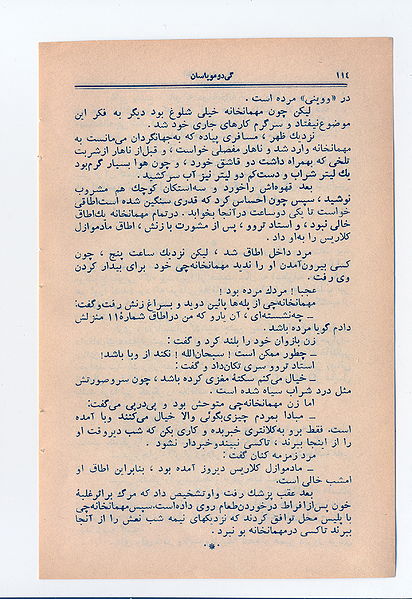 ۱۱٤
گی‌دوموپاسان
در «وویتی» مرده است .
لیکن چون مهمانخانه خیلی شلوغ بود دیگر به فکر این
موضوع نیفتاد و سرگرم کارهای جاری خود شد .
نزدیك ظهر ، مسافری پیاده که به‌جهانگردان می‌مانست به
مهمانخانه وارد شد و ناهار مفصلی خواست ، و قبل از ناهار ازشربت
تلخی که بهمراه داشت دو قاشق خورد ، و چون هوا بسیار گرم‌بود
یك لیتر شراب و دست‌کم دو لیتر نیز آب سرکشید .
بعد قهوه‌اش راخورد و سه‌استکان کوچك هم مشروب
نوشید ، سپس چون احساس کرد که قدری سنگین شده است‌اطاقی
خواست تا یکی دوساعت درآنجا بخوابد . درتمام مهمانخانه یك‌اطاق
خالی نبود ، و استاد تروو ، پس از مشورت با زنش ، اطاق مادموازل
کلاریس را به‌او داد .
مرد داخل اطاق شد ، لیکن نزدیك ساعت پنج ، چون
کسی بیرون‌آمدن او را ندید مهمانخانه‌چی خود برای بیدار کردن
وی رفت .
عجبا ! مردك مرده بود !
مهمانخانه‌چی از پله‌ها پائین دوید و بسراغ زنش رفت‌وگفت:
ــ چه‌نشسته‌ای ، آن یارو که من دراطاق شمارهٔ ۱۱ منزلش
دادم گویا مرده باشد .
زن بازوان خود را بلند کرد و گفت :
ــ چطور ممکن است ! سبحان‌الله ! نکند از وبا باشد!
استاد تروو سری تکان‌داد و گفت :
ــ خیال می‌کنم سکتهٔ مغزی کرده باشد ، چون سروصورتش
مثل درد شراب سیاه شده است .
اما زن مهمانخانه‌چی متوحش بود و پی‌درپی می‌گفت:
ــ مبادا بمردم چیزی‌بگوئی والا خیال می‌کنند وبا آمده
است. فقط برو به‌کلانتری خبربده و کاری بکن که شب دیروقت او
را از اینجا ببرند ، تاکسی نبیندوخبردار نشود .
مرد زمزمه کنان گفت :
ــ مادموازل کلاریس دیروز آمده بود ، بنابراین اطاق او
امشب خالی است.
بعد عقب پزشك رفت واوتشخیص داد که مرگ براثرغلبهٔ
خون پس ازافراط درخوردن‌طعام روی داده‌است.سپس‌مهمانخانه‌چی
با پلیس محل توافق کردند که نزدیکهای نیمه شب نعش را از آنجا
ببرند تاکسی درمهمانخانه بو نبرد .